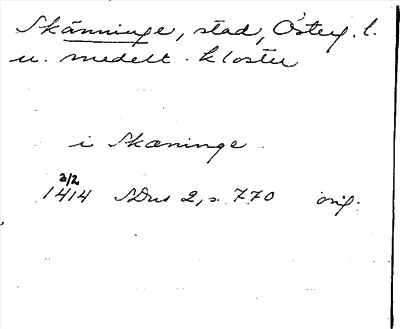 Skänninge, stad, Österg. l.
u. medelt. kloster
i Skæninge
3/2
1414 SDns 2, s. 770 orig.